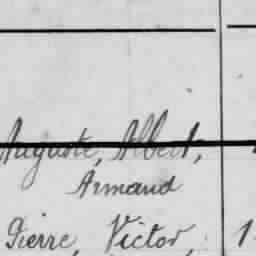 Auguste, Albert,
Armand
Pierre, Victor, 1